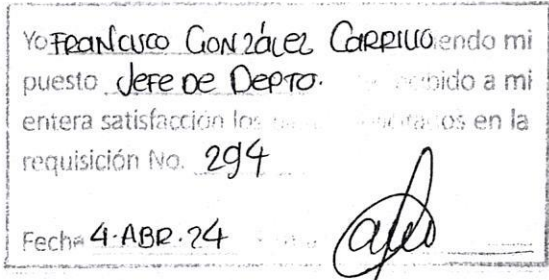 Yo FRANCISCO GONZÁLEZ CARRILLO endo mi
puesto JEFE DE DEPTO. bido a mi
entera satisfacción los en la
requisición No. 294
Fecha 4·ABR·24